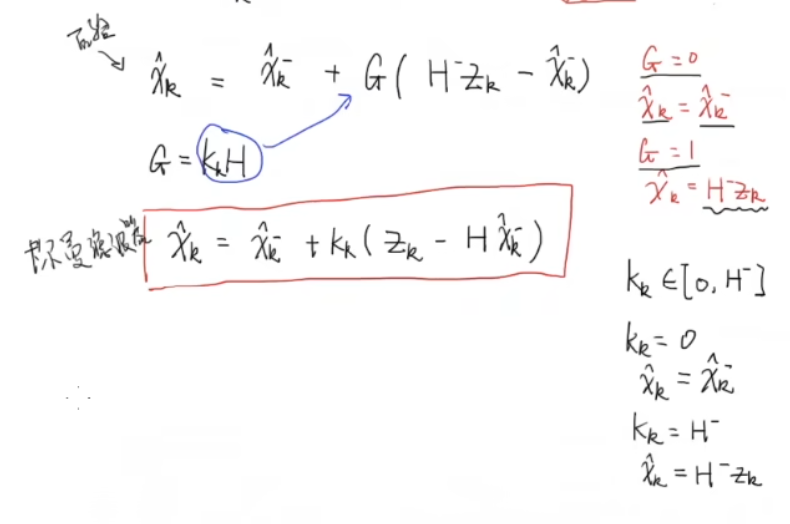 x̂ₖ = x̂ₖ⁻ + G( H⁻zₖ - x̂ₖ⁻)
G = kₖH
x̂ₖ = x̂ₖ⁻ + kₖ( zₖ - Hx̂ₖ⁻)
G = 0
x̂ₖ = x̂ₖ⁻
G = 1
x̂ₖ = H⁻zₖ
kₖ ∈ [0, H⁻]
kₖ = 0
x̂ₖ = x̂ₖ⁻
kₖ = H⁻
x̂ₖ = H⁻zₖ